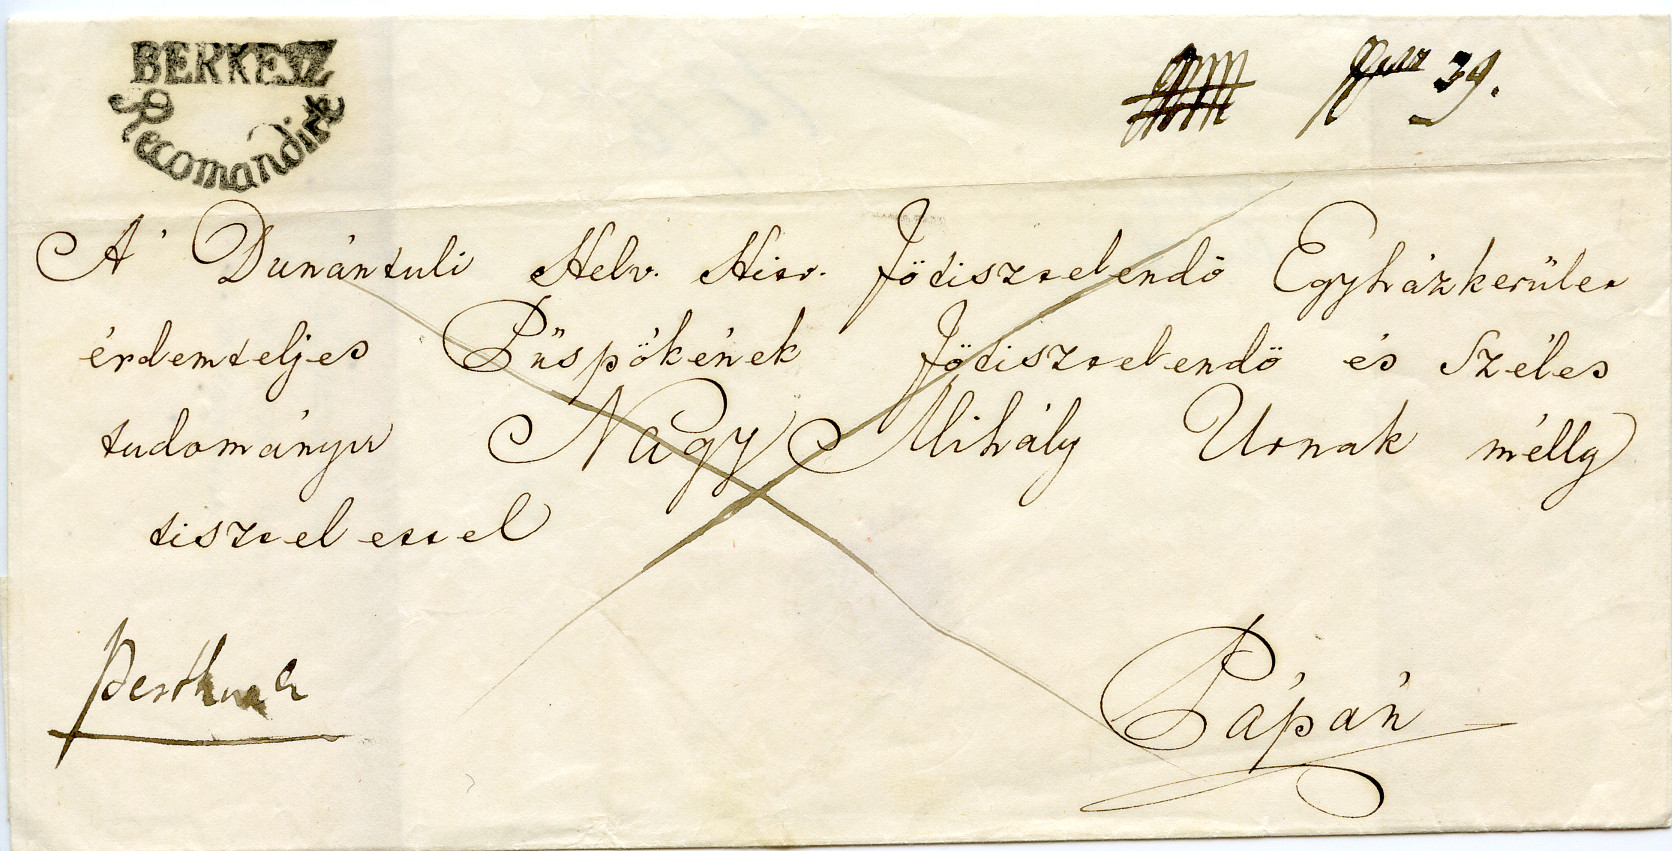 BERKESZ
Recomandirt
39.
A' Dunántuli Helv. Hitv. főtisztelendő Egyházkerület
érdemteljes Püspökének főtisztelendő és széles
tudományu Nagy Mihály Urnak mélly
tisztelettel
Pápán